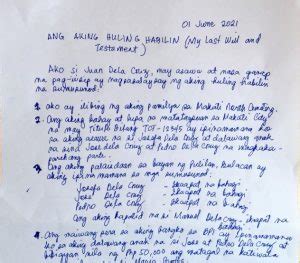 01 June 2021
ANG AKING HULING HABILIN (My Last Will and
Testament)
AKO si Juan Dela Cruz, may asawa at nasa
na pag-iisip ay nagsasalaysay ng aking huling habilin
na sumusunod:
1. ako ay ilibing ng aking pamilya sa Makati North Cemetery.
2. Ang aking bahay at lupa na matatagpuan sa Makati City
na may Titulo Bilang TCT-12345 ay ipinamamana ko
sa aking asawa na si Josefa Dela Cruz at dalawang anak
na sina Jose Dela Cruz at Pedro Dela Cruz na
parte.
3. Ang aking palaisdaan sa bayan ng Pulilan, Bulacan ay
aking ipinamamana sa mga sumusunod:
Josefa Dela Cruz - ikaapat na bahagi
Jose Dela Cruz - ikaapat na bahagi
Pedro Dela Cruz - ikaapat na bahagi
Ang aking kapatid na si Manuel Dela Cruz - ikaapat na
bahagi
4. Ang naiwang pera sa aking bangko sa BPI ay ipinamamana
ko sa aking dalawang anak na si Jose at Pedro Dela Cruz at
bibigyan nila ng Php 50,000 ang matagal na katiwala